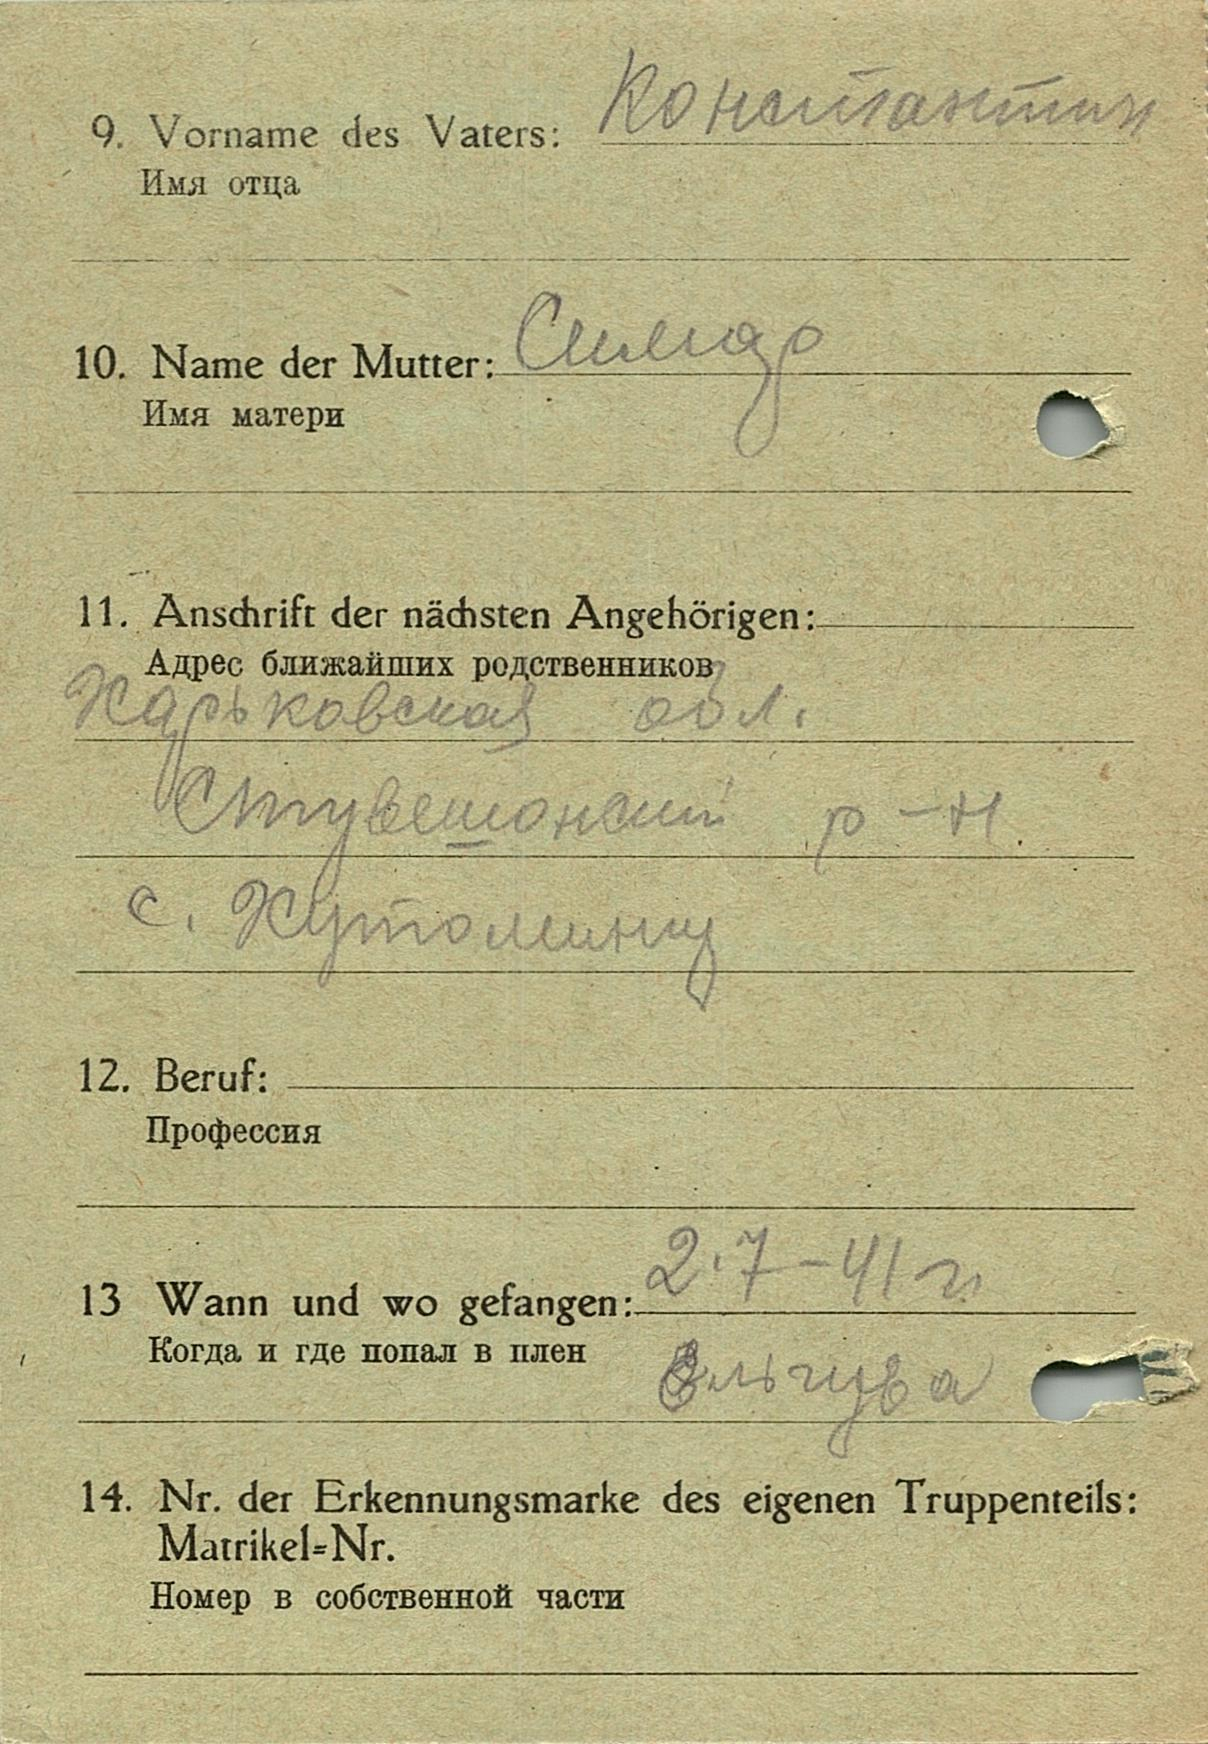 9. Vorname des Vaters: Константин
Имя отца
10. Name der Mutter:
Имя матери
11. Anschrift der nächsten Angehörigen:
Адрес ближайших родственников
Харьковская обл.
р-н.
с.
12. Beruf:
Профессия
13 Wann und wo gefangen: 2.7-41 г.
Когда и где попал в плен
14. Nr. der Erkennungsmarke des eigenen Truppenteils:
Matrikel=Nr.
Номер в собственной части